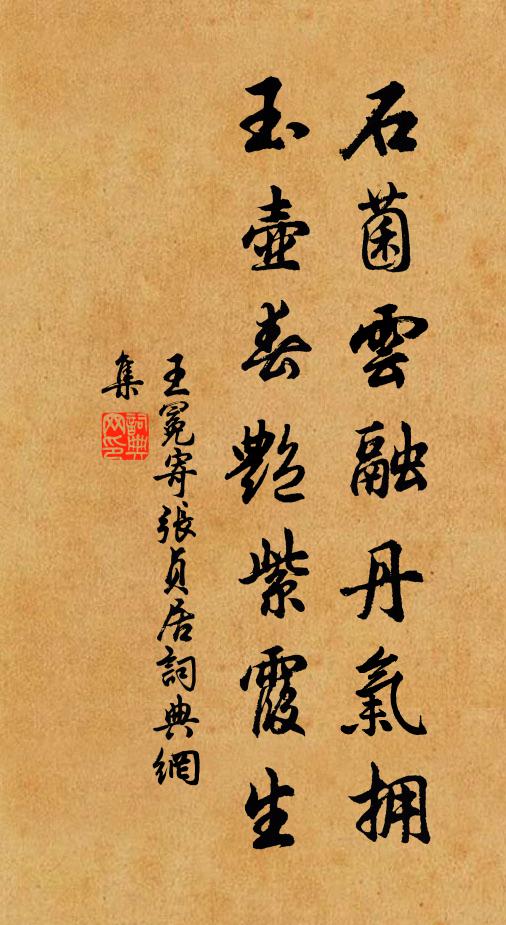 石菌雲融丹氣拥
玉壺春艷紫霞生
王冕寄張貞居詞典網
集
詞典
网印